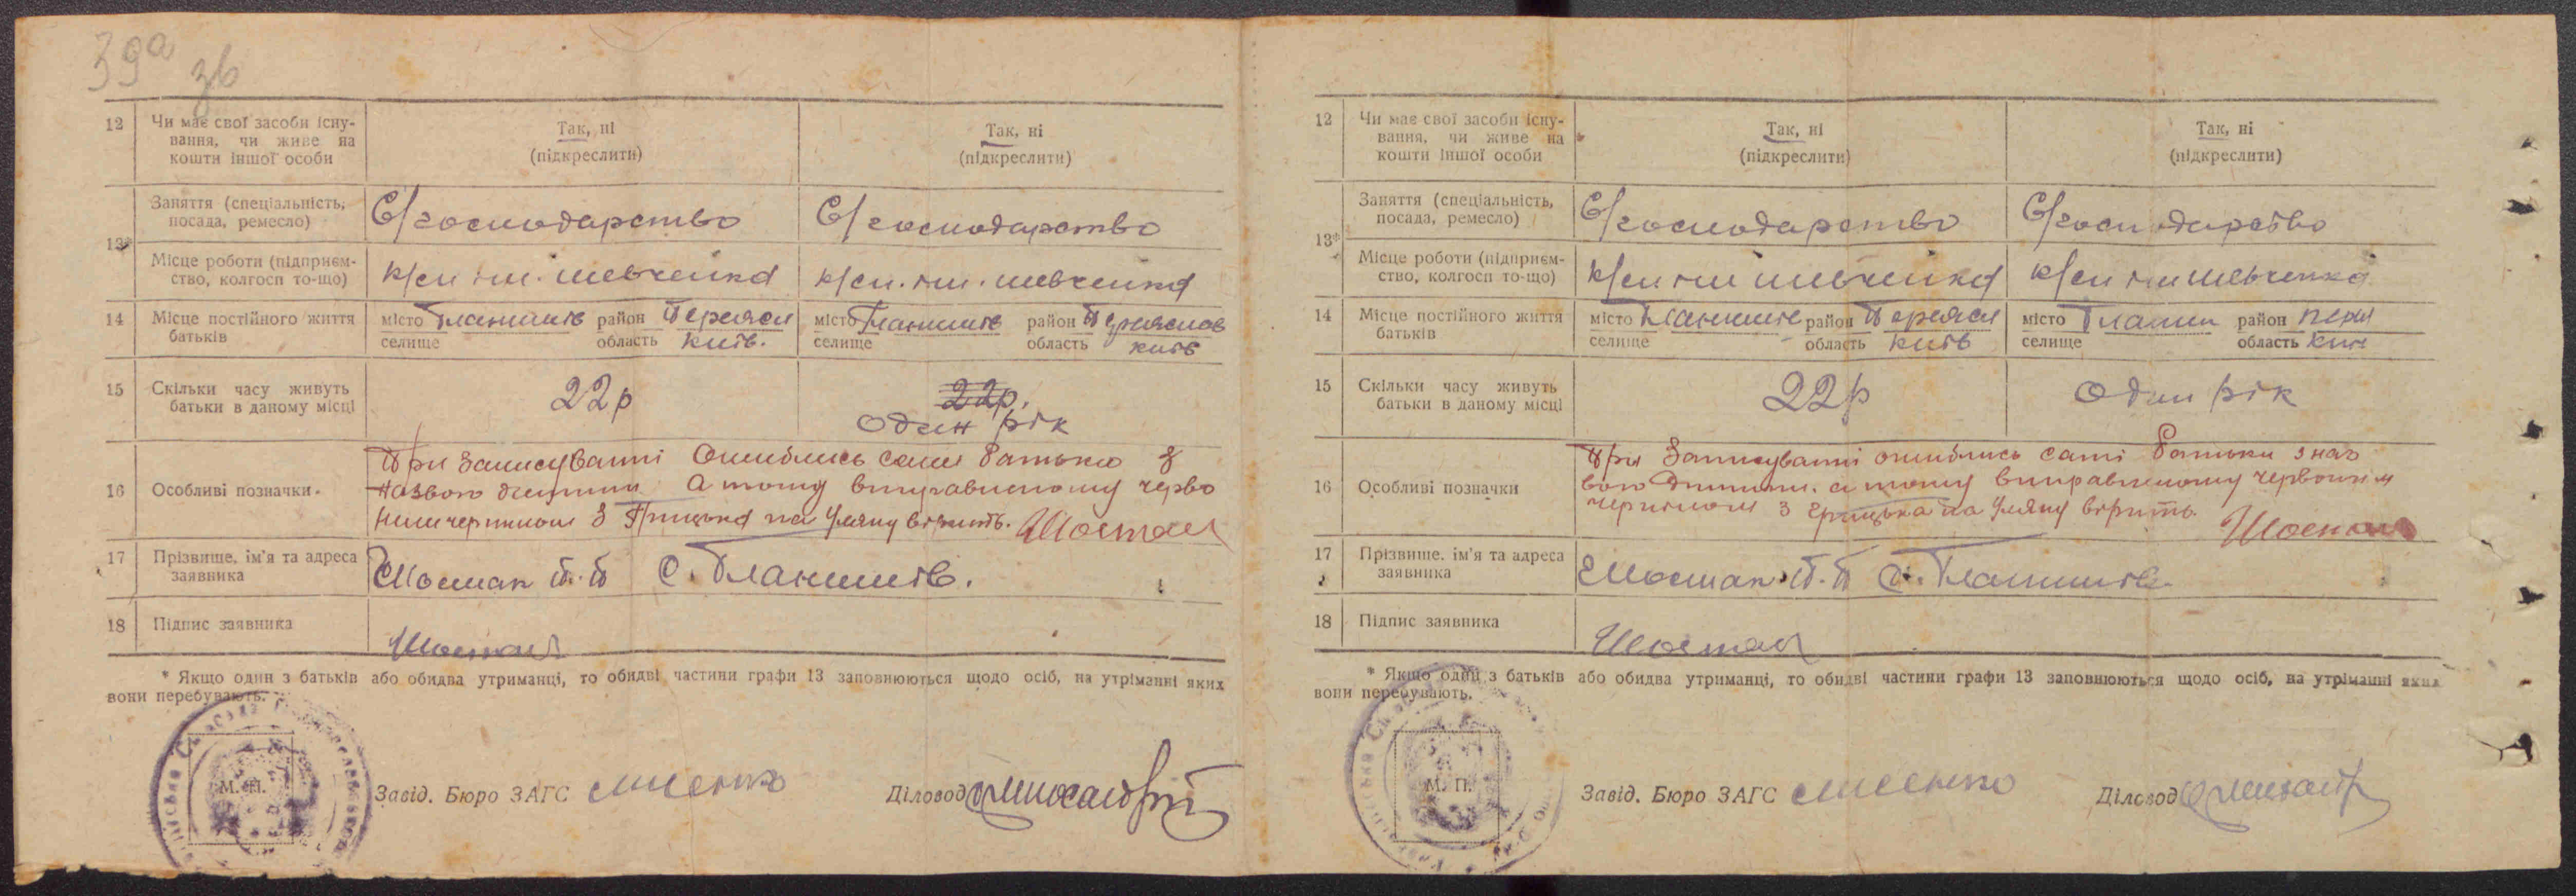 39а
зв
12 Чи має свої засоби існу-
вання, чи живе на
кошти іншої особи
Так, ні
(підкреслити)
Так, ні
(підкреслити)
13*
Заняття (спеціальність,
посада, ремесло)
С/господарство
С/господарство
Місце роботи (підприєм-
ство, колгосп то-що)
к/сп ім. Шевченка
к/сп. ім. Шевченка
14 Місце постійного життя
батьків
місто район Переясл
селище область Київ.
місто район Переяслов
селище область Київ
15 Скільки часу живуть
батьки в даному місці
22 р
22р.
Один рік
16 Особливі позначки.
При записуванні ошиблись самі батьки з
назвою дитини. А тому виправленому черво
ним чернилом з Грицька на Уляну вірить. Шостак
17 Прізвище, ім'я та адреса
заявника
Шостак П. П с.
18 Підпис заявника
Шостак
* Якщо один з батьків або обидва утриманці, то обидві частини графи 13 заповнюються щодо осіб, на утріманні яких
вони перебувають.
М. П.
Завід. Бюро ЗАГС
Діловод
12 Чи має свої засоби існу-
вання, чи живе на
кошти іншої особи
Так, ні
(підкреслити)
Так, ні
(підкреслити)
13*
Заняття (спеціальність,
посада, ремесло)
С/господарство
С/господарство
Місце роботи (підприєм-
ство, колгосп то-що)
к/сп ім Шевченка
к/сп ім Шевченка
14 Місце постійного життя
батьків
місто район Переясл
селище область Київ
місто район Перея
селище область Київ
15 Скільки часу живуть
батьки в даному місці
22р
Один рік
16 Особливі позначки
При записуванні ошиблись самі батьки з наз
вою дитини. а тому виправленому червоним
чернилом з Грицька на Уляну вірить.
Шостак
17 Прізвище, ім'я та адреса
заявника
Шостак П. П с.
18 Підпис заявника
Шостак
* Якщо один з батьків або обидва утриманці, то обидві частини графи 13 заповнюються щодо осіб, на утріманні яких
вони перебувають.
М. П.
Завід. Бюро ЗАГС
Діловод